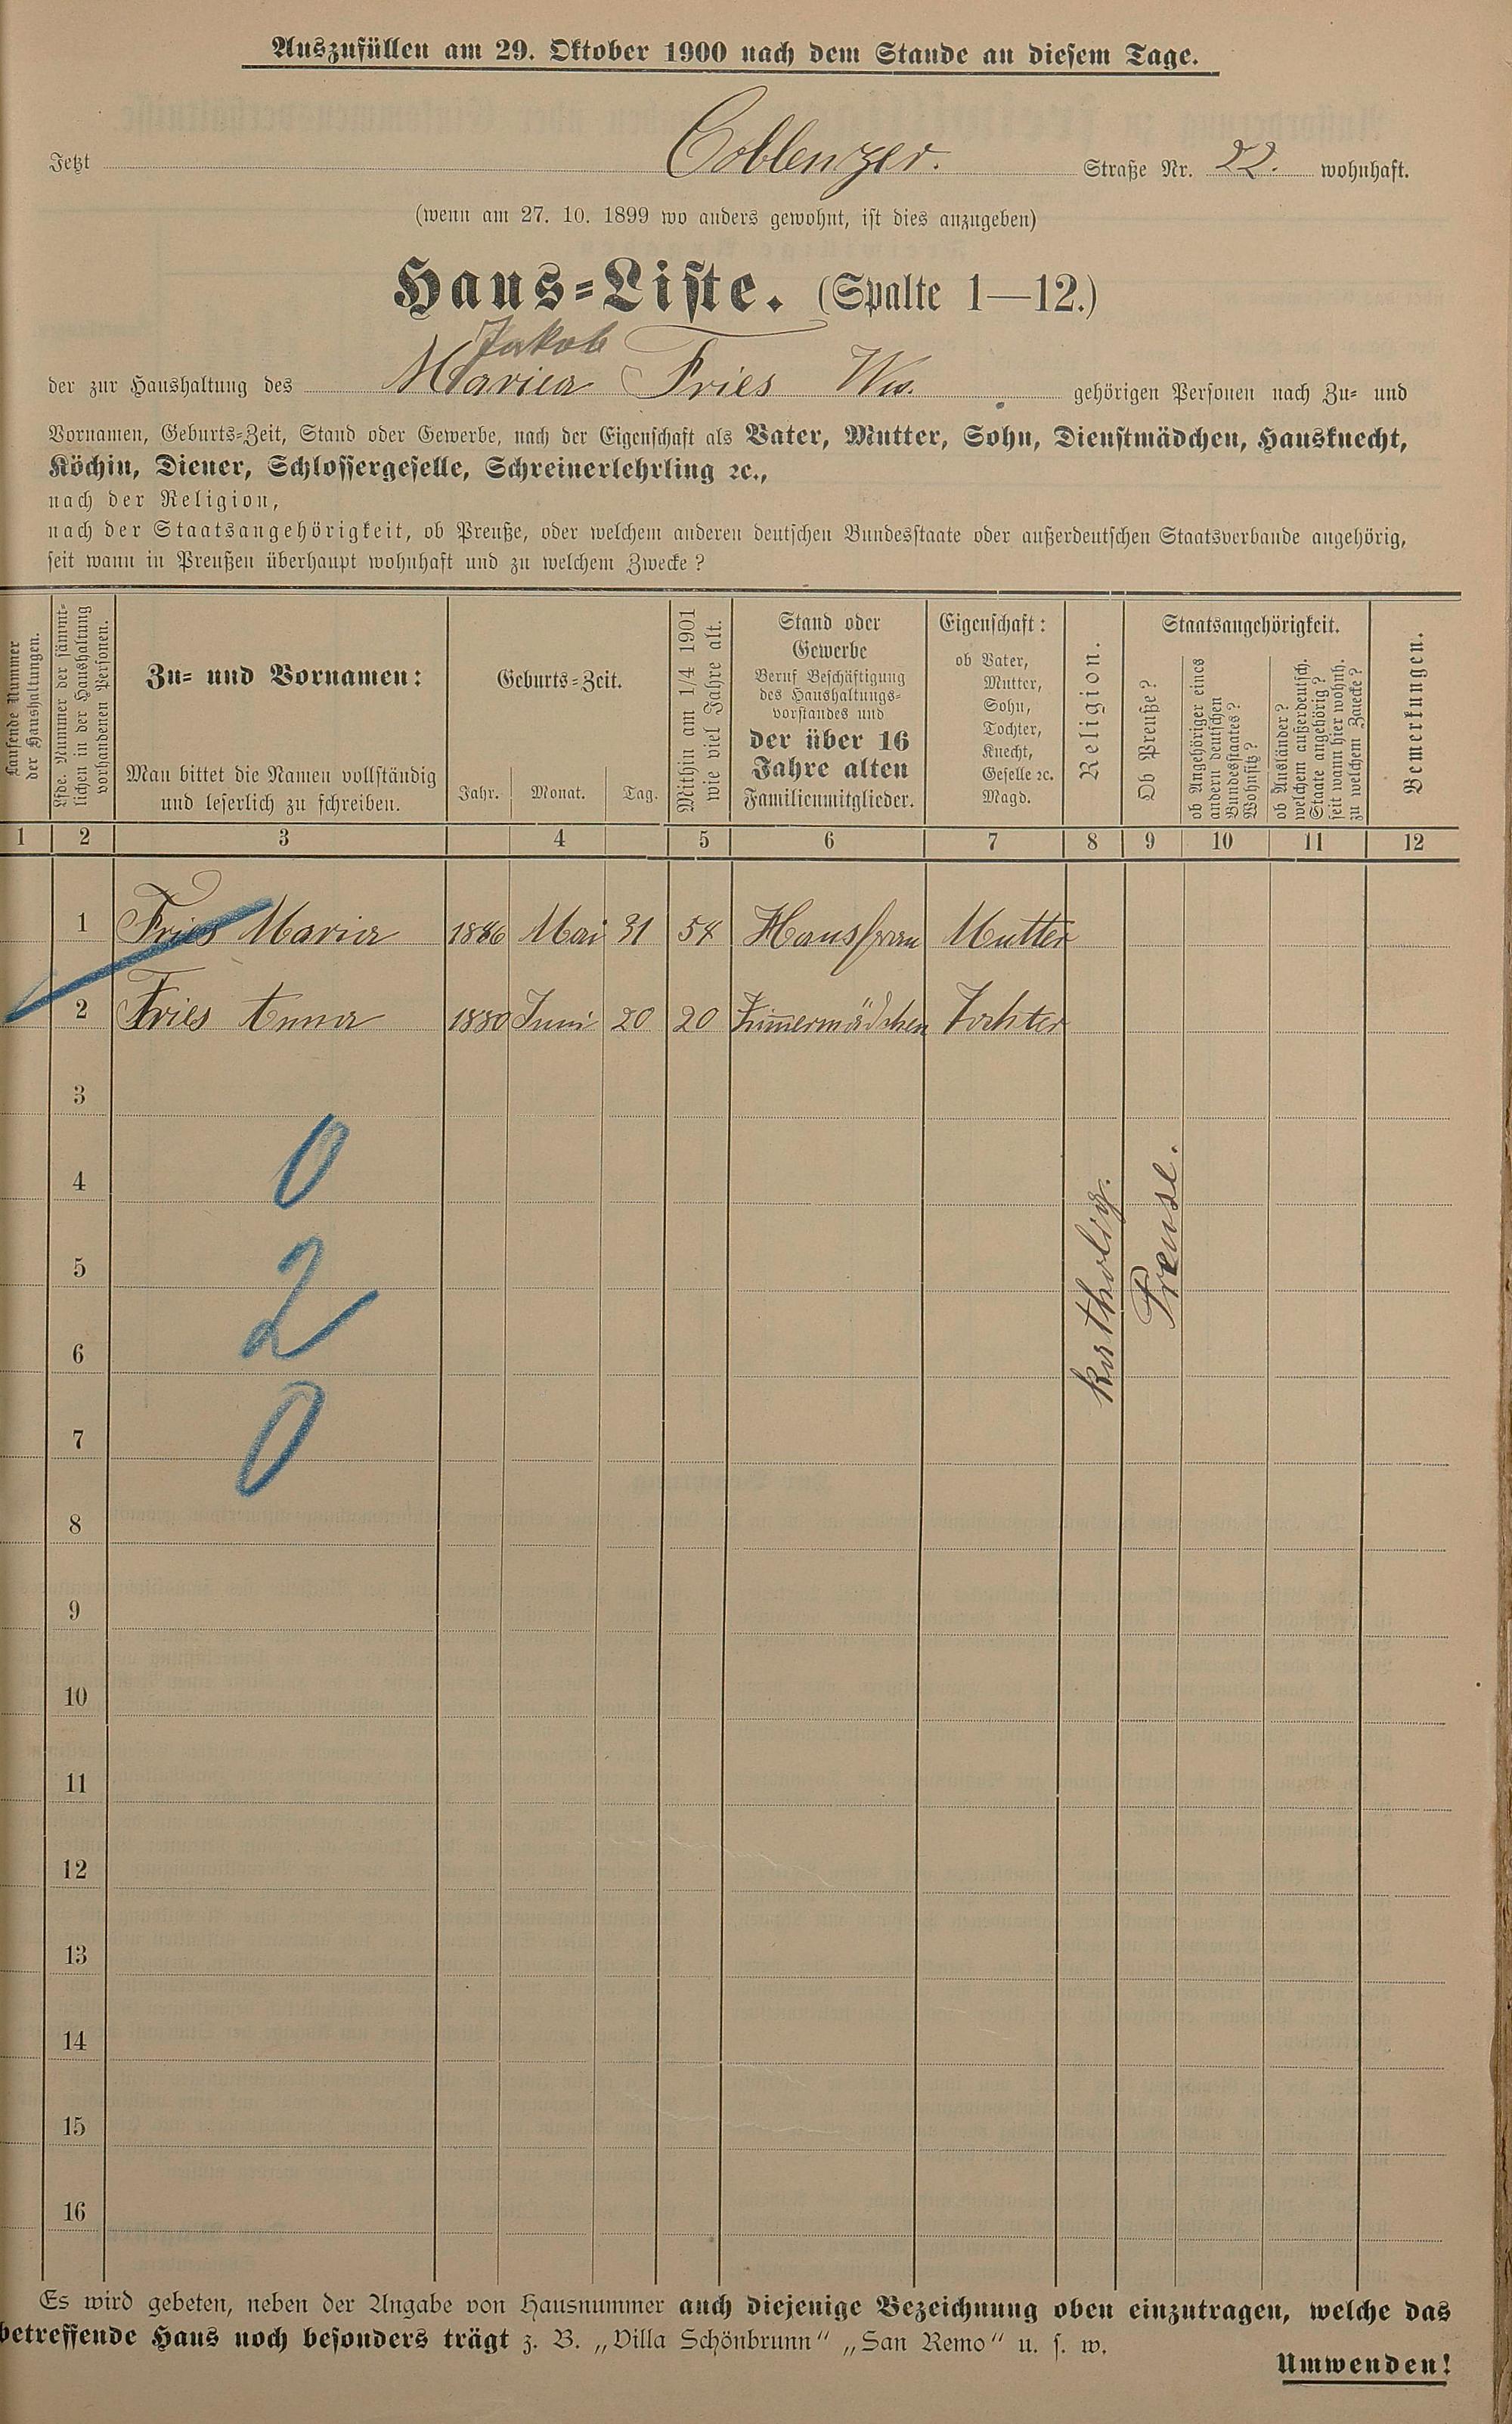 Auszufüllen am 29. Oktober 1900 nach dem Stande an diesem Tage.
Jetzt Coblenzer. Straße Nr. 22. wohnhaft.
(wenn am 27. 10. 1899 wo anders gewohnt, ist dies anzugeben)
Haus-Liste. (Spalte 1—12.)
Jakob
der zur Haushaltung des Maria Fries Ww. gehörigen Personen nach Zu- und
Vornamen, Geburts-Zeit, Stand oder Gewerbe, nach der Eigenschaft als Vater, Mutter, Sohn, Dienstmädchen, Hausknecht,
Köchin, Diener, Schlossergeselle, Schreinerlehrling ꝛc.,
nach der Religion,
nach der Staatsangehörigkeit, ob Preuße, oder welchem anderen deutschen Bundesstaate oder außerdeutschen Staatsverbande angehörig,
seit wann in Preußen überhaupt wohnhaft und zu welchem Zwecke?
Laufende Nummer
der Haushaltungen.
Lfde. Nummer der sämmt-
lichen in der Haushaltung
vorhandenen Personen.
Zu- und Vornamen:
Man bittet die Namen vollständig
und leserlich zu schreiben.
Geburts-Zeit.
Jahr. Monat. Tag.
Mithin am 1/4 1901
wie viel Jahre alt.
Stand oder
Gewerbe
Beruf Beschäftigung
des Haushaltungs-
vorstandes und
der über 16
Jahre alten
Familienmitglieder.
Eigenschaft:
ob Vater,
Mutter,
Sohn,
Tochter,
Knecht,
Geselle ꝛc.
Magd.
Religion.
Staatsangehörigkeit.
Ob Preuße?
ob Angehöriger eines
andern deutschen
Bundesstaates?
Wohnsitz?
ob Ausländer?
welchem außerdeutsch.
Staate angehörig?
seit wann hier wohnh.
zu welchem Zwecke?
Bemerkungen.
1 2 3 4 5 6 7 8 9 10 11 12
1 Fries Maria 1846 Mai 31 54 Hausfrau Mutter
2 Fries Anna 1880 Juni 20 20 Zimmermädchen Tochter
katholig.
Preuse.
3
0
4
5
2
6
7
0
8
9
10
11
12
13
14
15
16
Es wird gebeten, neben der Angabe von Hausnummer auch diejenige Bezeichnung oben einzutragen, welche das
betreffende Haus noch besonders trägt z. B. „Villa Schönbrunn“ „San Remo“ u. s. w.
Umwenden!